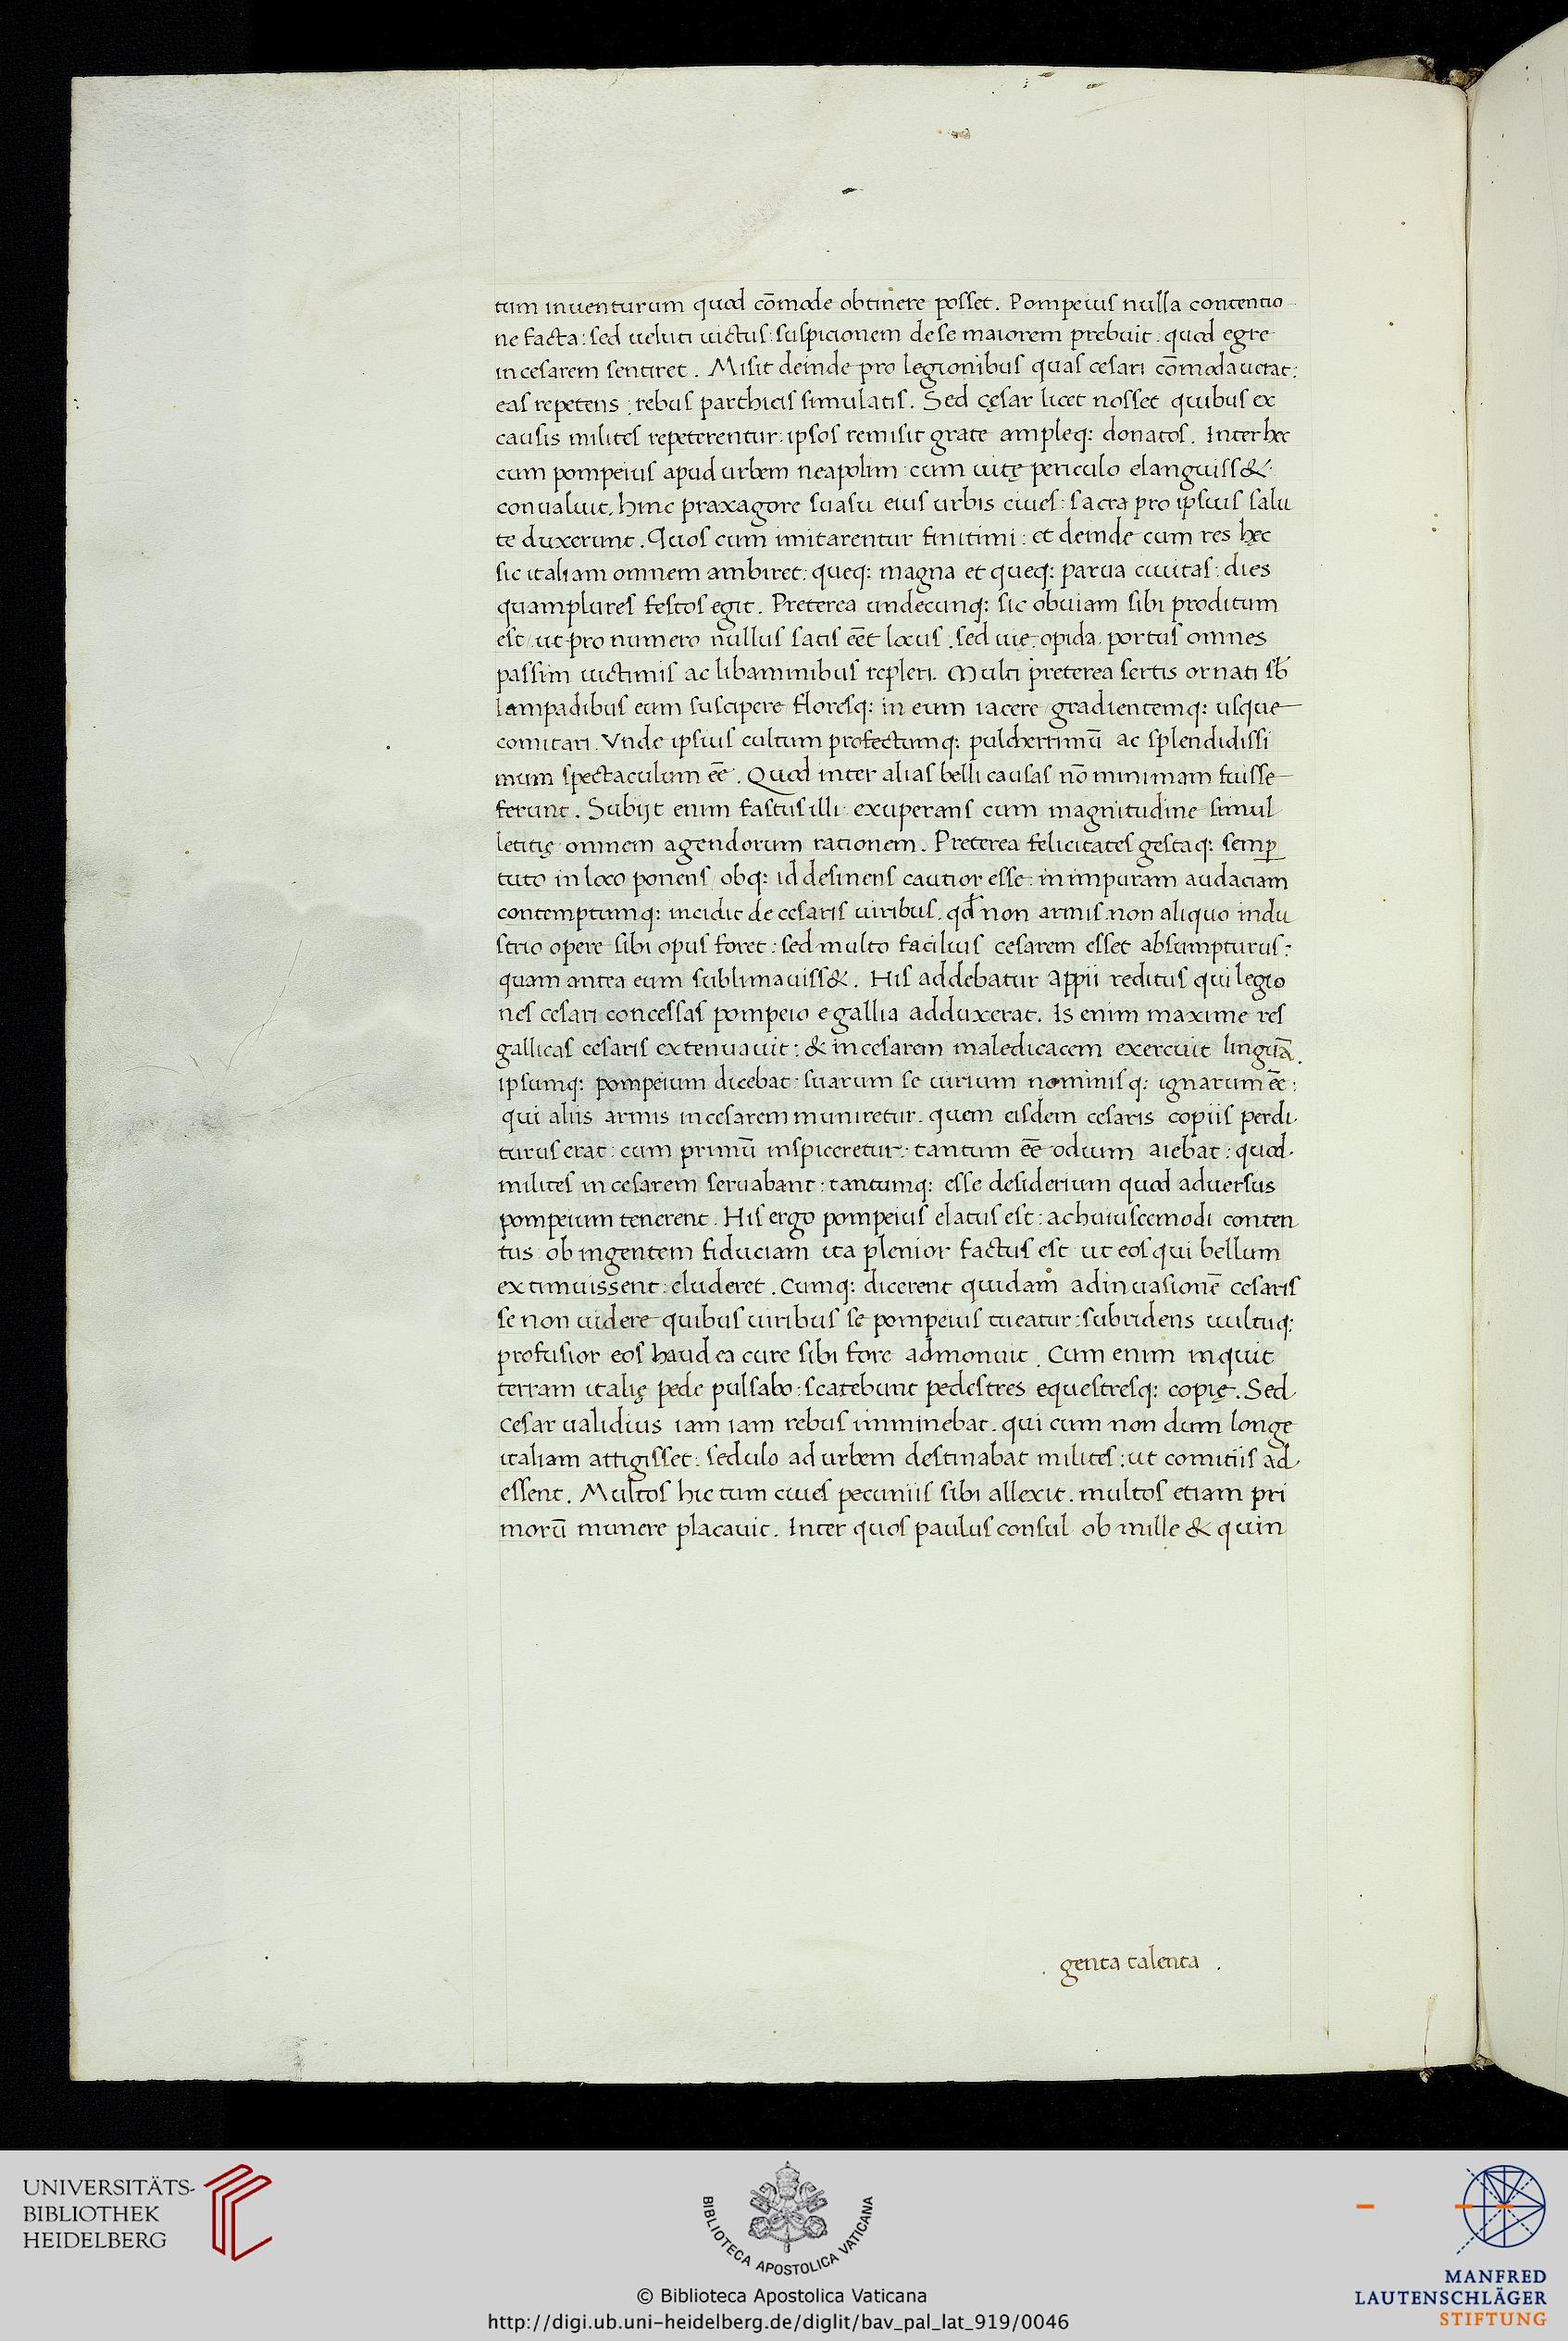 tum inuenturum quod cõmode obtinere posset. Pompeius nulla contentio
ne facta: sed ueluti uictus: suspicionem de se maiorem prebuit: quod egre
in cesarem sentiret. Misit deinde pro legionibus quas cesari cõmodauerat:
eas repetens: rebus parthicis simulatis. Sed cęsar licet nosset quibus ex
causis milites repeterentur: ipsos remisit grate ampleq: donatos. Inter hec
cum pompeius apud urbem neapolim cum uitę periculo elanguiss&
conualuit. hinc praxagore suasu eius urbis ciues: sacra pro ipsius salu
te duxerunt. Quos cum imitarentur finitimi: et deinde cum res hęc
sic italiam omnem ambiret: queq: magna et queq: parua ciuitas: dies
quamplures festos egit. Preterea undecunq: sic obuiam sibi proditum
est: ut pro numero nullus satis eẽt locus: sed uię. opida. portus omnes
passim uictimis ac libaminibus repleri. Multi preterea sertis ornati sb̃
lampadibus eum suscipere floresq: in eum iacere gradientemq: usque
comitari. Vnde ipsius cultum profectumq: pulcherrimũ ac splendidissi
mum spectaculum eẽ. Quod inter alias belli causas nõ minimam fuisse
ferunt. Subijt enim fastus illi exuperans cum magnitudine simul
letitię omnem agendorum rationem. Preterea felicitates gestaq: semꝑ
tuto in loco ponens / obq: id desinens cautior esse: in impuram audaciam
contemptumq: incidit de cesaris uiribus. qđ non armis non aliquo indu
strio opere sibi opus foret: sed multo facilius cesarem esset absumpturus:
quam antea eum sublimauiss&. His addebatur Appii reditus qui legio
nes cesari concessas pompeio e gallia adduxerat. Is enim maxime res
gallicas cesaris extenuauit: & in cesarem maledicacem exercuit linguã.
ipsumq: pompeium dicebat suarum se uirium nominisq: ignarum eẽ:
qui aliis armis in cesarem muniretur. quem eisdem cesaris copiis perdi
turus erat: cum primũ inspiceretur: tantum eẽ odium aiebat: quod
milites in cesarem seruabant: tantumq: esse desiderium quod aduersus
pompeium tenerent. His ergo pompeius elatus est: ac huiuscemodi conten
tus ob ingentem fiduciam ita plenior factus est ut eos qui bellum
extimuissent: eluderet. Cumq: dicerent quidam ad inuasionẽ cesaris
se non uidere quibus uiribus se pompeius tueatur: subridens uultuq:
profusior eos haud ea cure sibi fore admonuit. Cum enim inquit
terram italię pede pulsabo: scatebunt pedestres equestresq: copię. Sed
cesar ualidius iam iam rebus imminebat. qui cum non dum longe
italiam attigisset: sedulo ad urbem destinabat milites: ut comitiis ad
essent. Multos hic tum ciues pecuniis sibi allexit. multos etiam pri
morũ munere placauit. Inter quos paulus consul ob mille & quin
. genta talenta .
UNIVERSITÄTS-
BIBLIOTHEK
HEIDELBERG
BIBLIOTECA APOSTOLICA VATICANA
© Biblioteca Apostolica Vaticana
http://digi.ub.uni-heidelberg.de/diglit/bav_pal_lat_919/0046
MANFRED
LAUTENSCHLÄGER
STIFTUNG